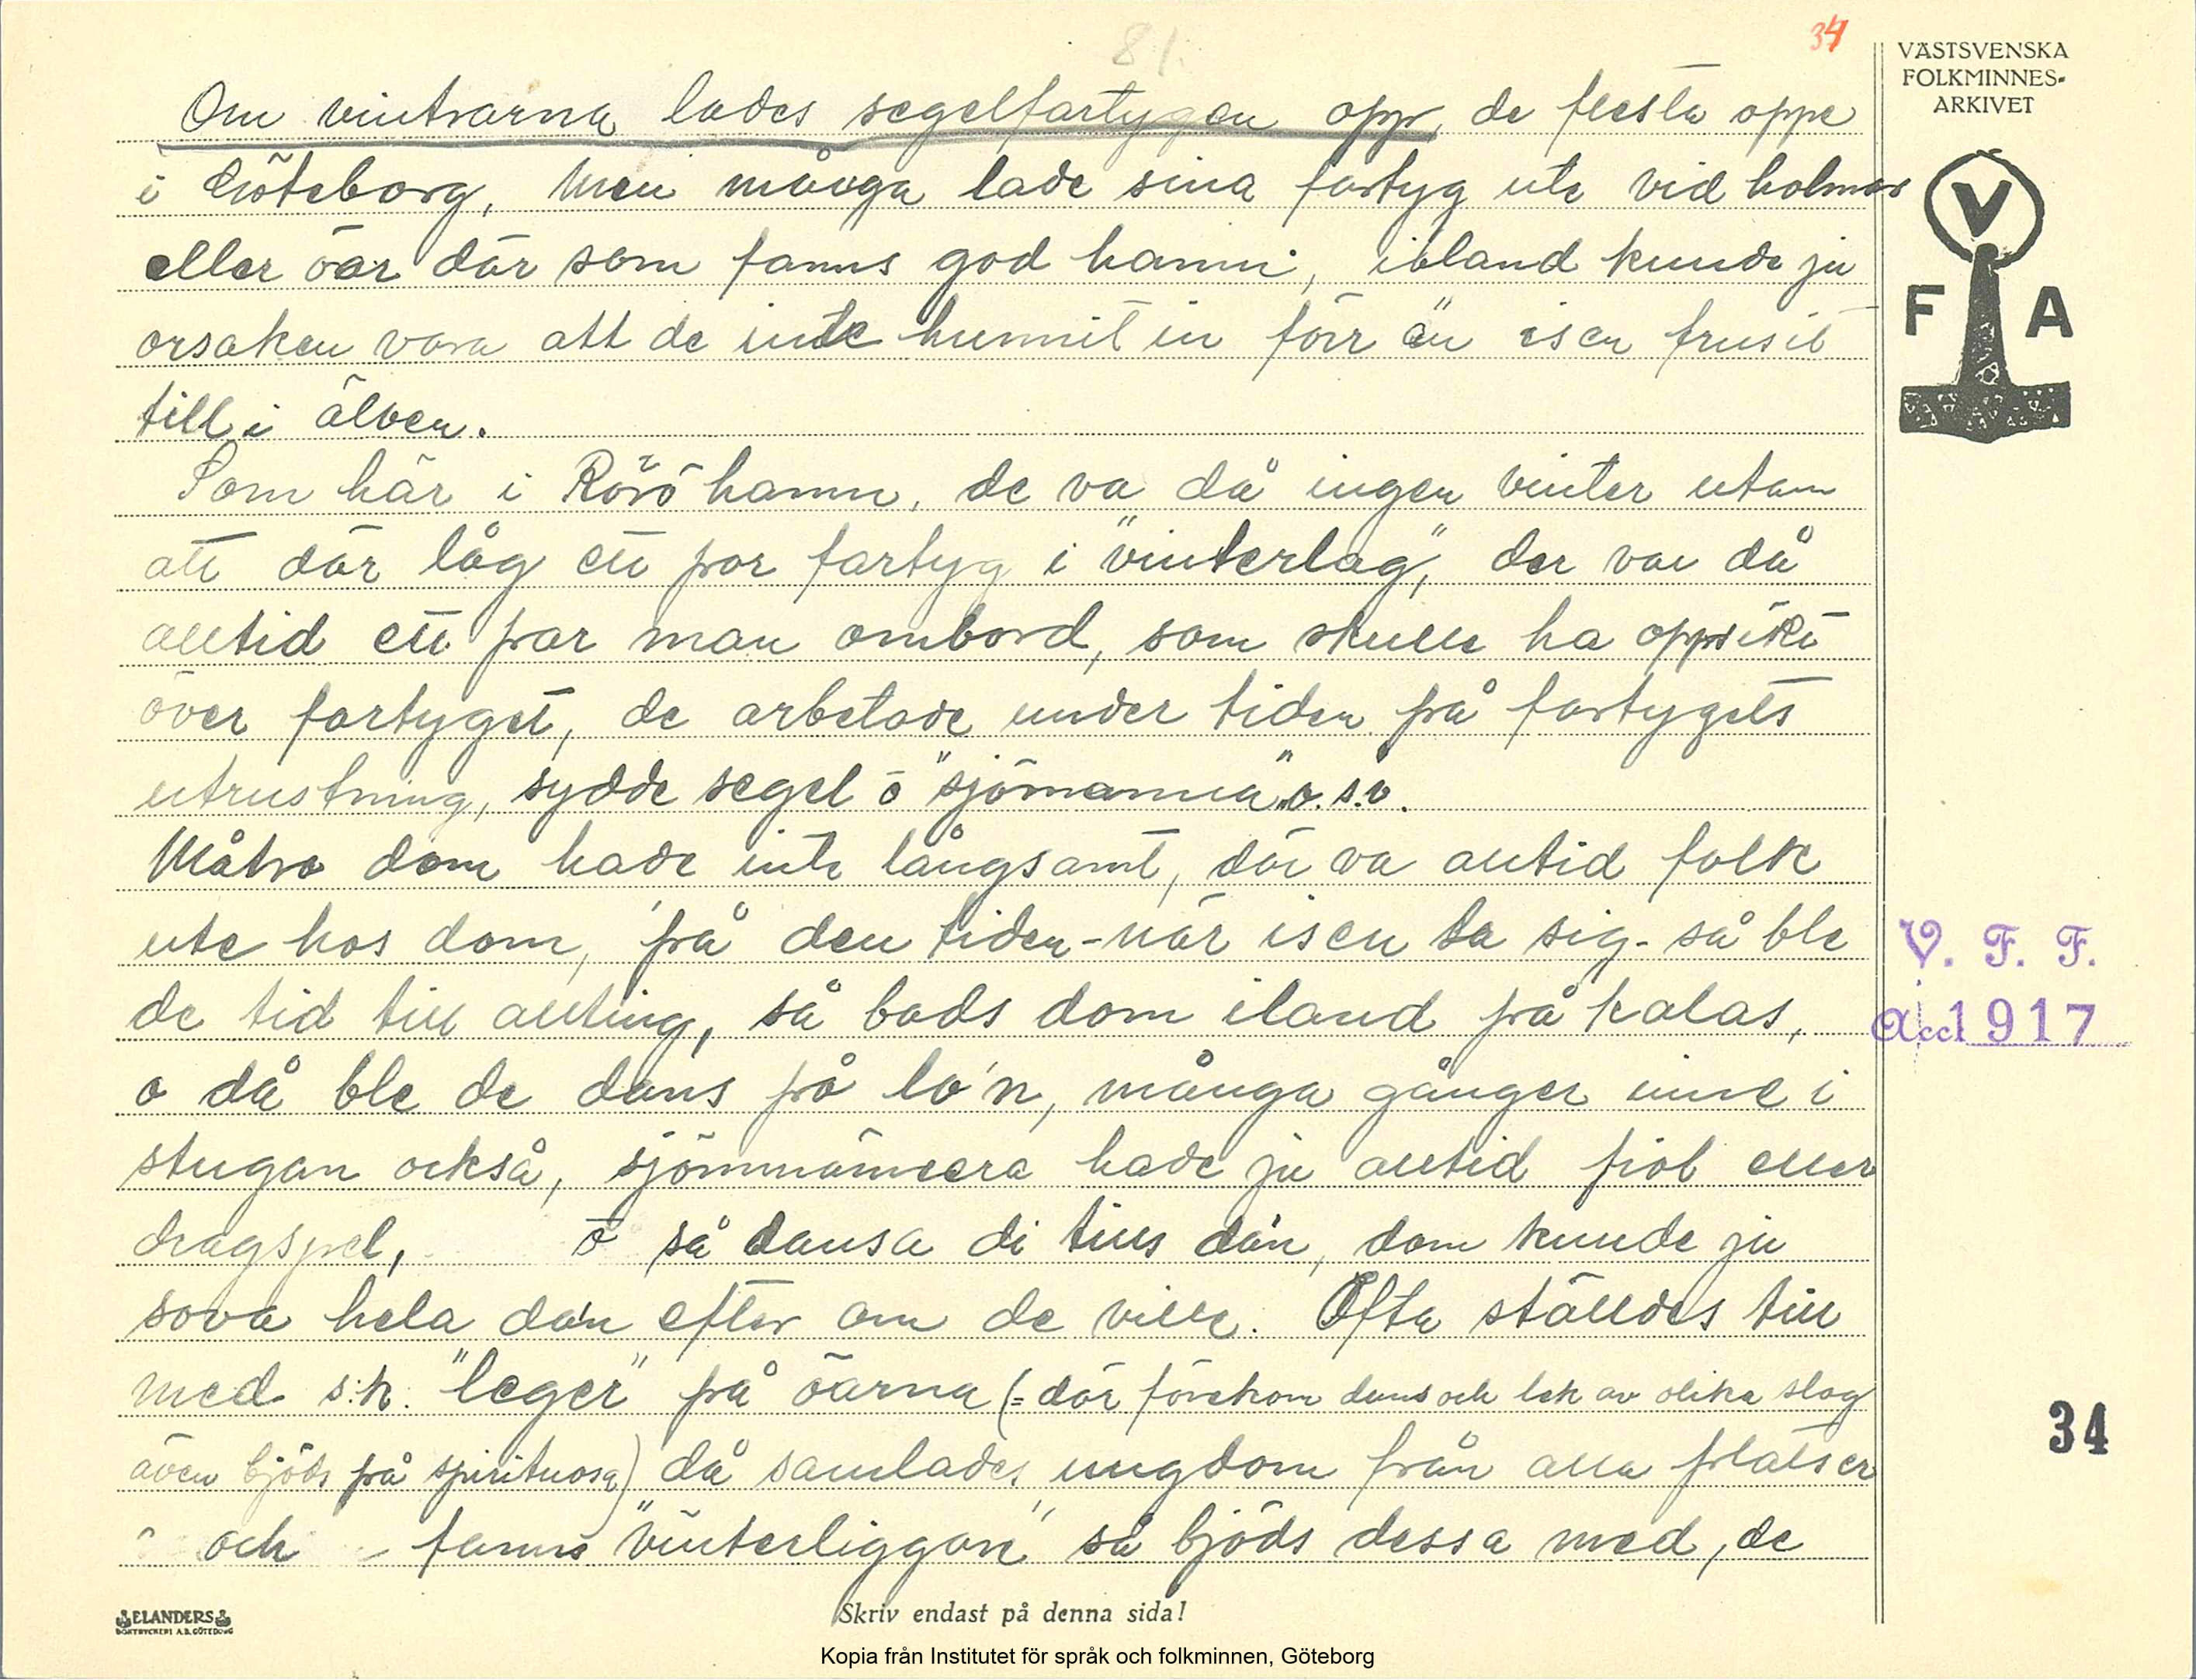 81.
34
VÄSTSVENSKA
FOLKMINNES-
ARKIVET
V
F A
Om vintrarna lades segelfartygen opp, de flesta oppe
i Göteborg, Men många lade sina fartyg ute vid holmar
eller öar där som fanns god hamn, ibland kunde ju
orsaken vara att de inte hunnit in förr än isen frusit
till i älven.
Som här i Rörö hamn, de va då ingen vinter utan
att där låg ett par fartyg i "vinterlag", der var då
alltid ett par man ombord, som skulle ha oppsikt
över fartyget, de arbetade under tiden på fartygets
utrustning, sydde segel ö "sjömanna" o.s.v.
Måtro dom hade inte långsamt, där va alltid folk
ute hos dom, på den tiden-när isen la sig-så ble
de tid till allting, så bads dom iland på kalas,
o då ble de dans på lo'n, många gånger inne i
stugan också, sjömmännera hade ju alltid fiol eller
dragspel, ö så dansa di tills da'n, dom kunde ju
sova hela da'n efter om de ville. Ofta ställdes till
med s.k. "leger" på öarna (= där förekom dans och lek av olika slag
även bjöds på spirituosa) då samlades ungdom från alla platser
och fanns "vinterliggare" så bjöds dessa med, de
V. F. F.
Acc 1917
34
ELANDERS
BOKTRYCKERI A.B. GÖTEBORG
Skriv endast på denna sida!
Kopia från Institutet för språk och folkminnen, Göteborg